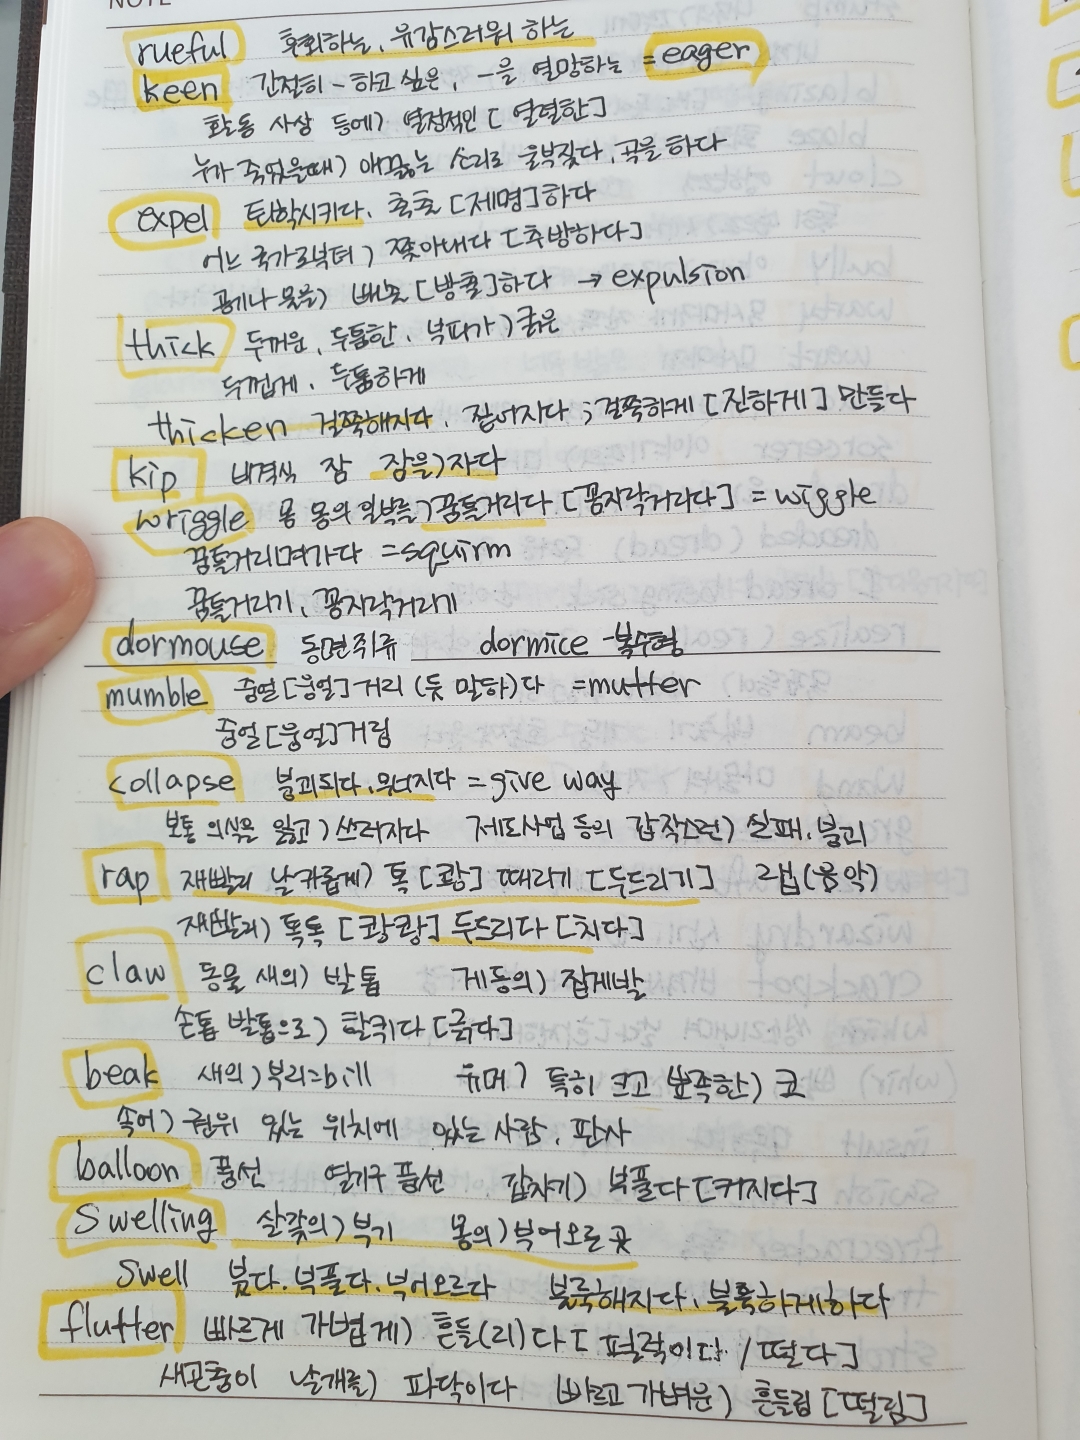 NOTE
rueful 후회하는, 유감스러워 하는
keen 간절히 - 하고 싶은, -을 열망하는 = eager
활동 사상 등에) 열정적인 [열렬한]
누가 죽었을때) 애끓는 소리로 울부짖다, 곡을 하다
expel 퇴학시키다, 축출 [제명]하다
어느 국가로부터) 쫓아내다 [추방하다]
공기나 물을) 배출 [방출]하다 → expulsion
thick 두꺼운, 두툼한, 부피가) 굵은
두껍게, 두툼하게
thicken 걸쭉해지다, 짙어지다 ; 걸쭉하게 [진하게] 만들다
kip 비격식 잠 잠을) 자다
wriggle 몸 몸의 일부를) 꿈틀거리다 [꼼지락거리다] = wiggle
꿈틀거리며가다 = squirm
꿈틀거리기, 꼼지락거리기
dormouse 동면쥐류 dormice -복수형
mumble 중얼[웅얼]거리 (듯 말하)다 =mutter
중얼[웅얼]거림
collapse 붕괴되다, 무너지다 = give way
보통 의식을 잃고) 쓰러지다 제도사업 등의 갑작스런) 실패, 붕괴
rap 재빨리 날카롭게) 톡 [쾅] 때리기 [두드리기] 랩(음악)
재빨리) 톡톡 [쾅쾅] 두드리다 [치다]
claw 동물 새의) 발톱 게 등의) 집게발
손톱 발톱으로) 할퀴다 [긁다]
beak 새의) 부리=bill 유머) 특히 크고 뾰족한) 코
속어) 권위 있는 위치에 있는 사람, 판사
balloon 풍선 열기구 풍선 갑자기) 부풀다 [커지다]
swelling 살갗의) 부기 몸의) 부어오른 곳
swell 붓다. 부풀다. 부어오르다 불룩해지다, 불룩하게하다
flutter 빠르게 가볍게) 흔들(리)다 [펄럭이다 / 떨다]
새곤충이 날개를) 파닥이다 빠르고 가벼운) 흔들림 [떨림]